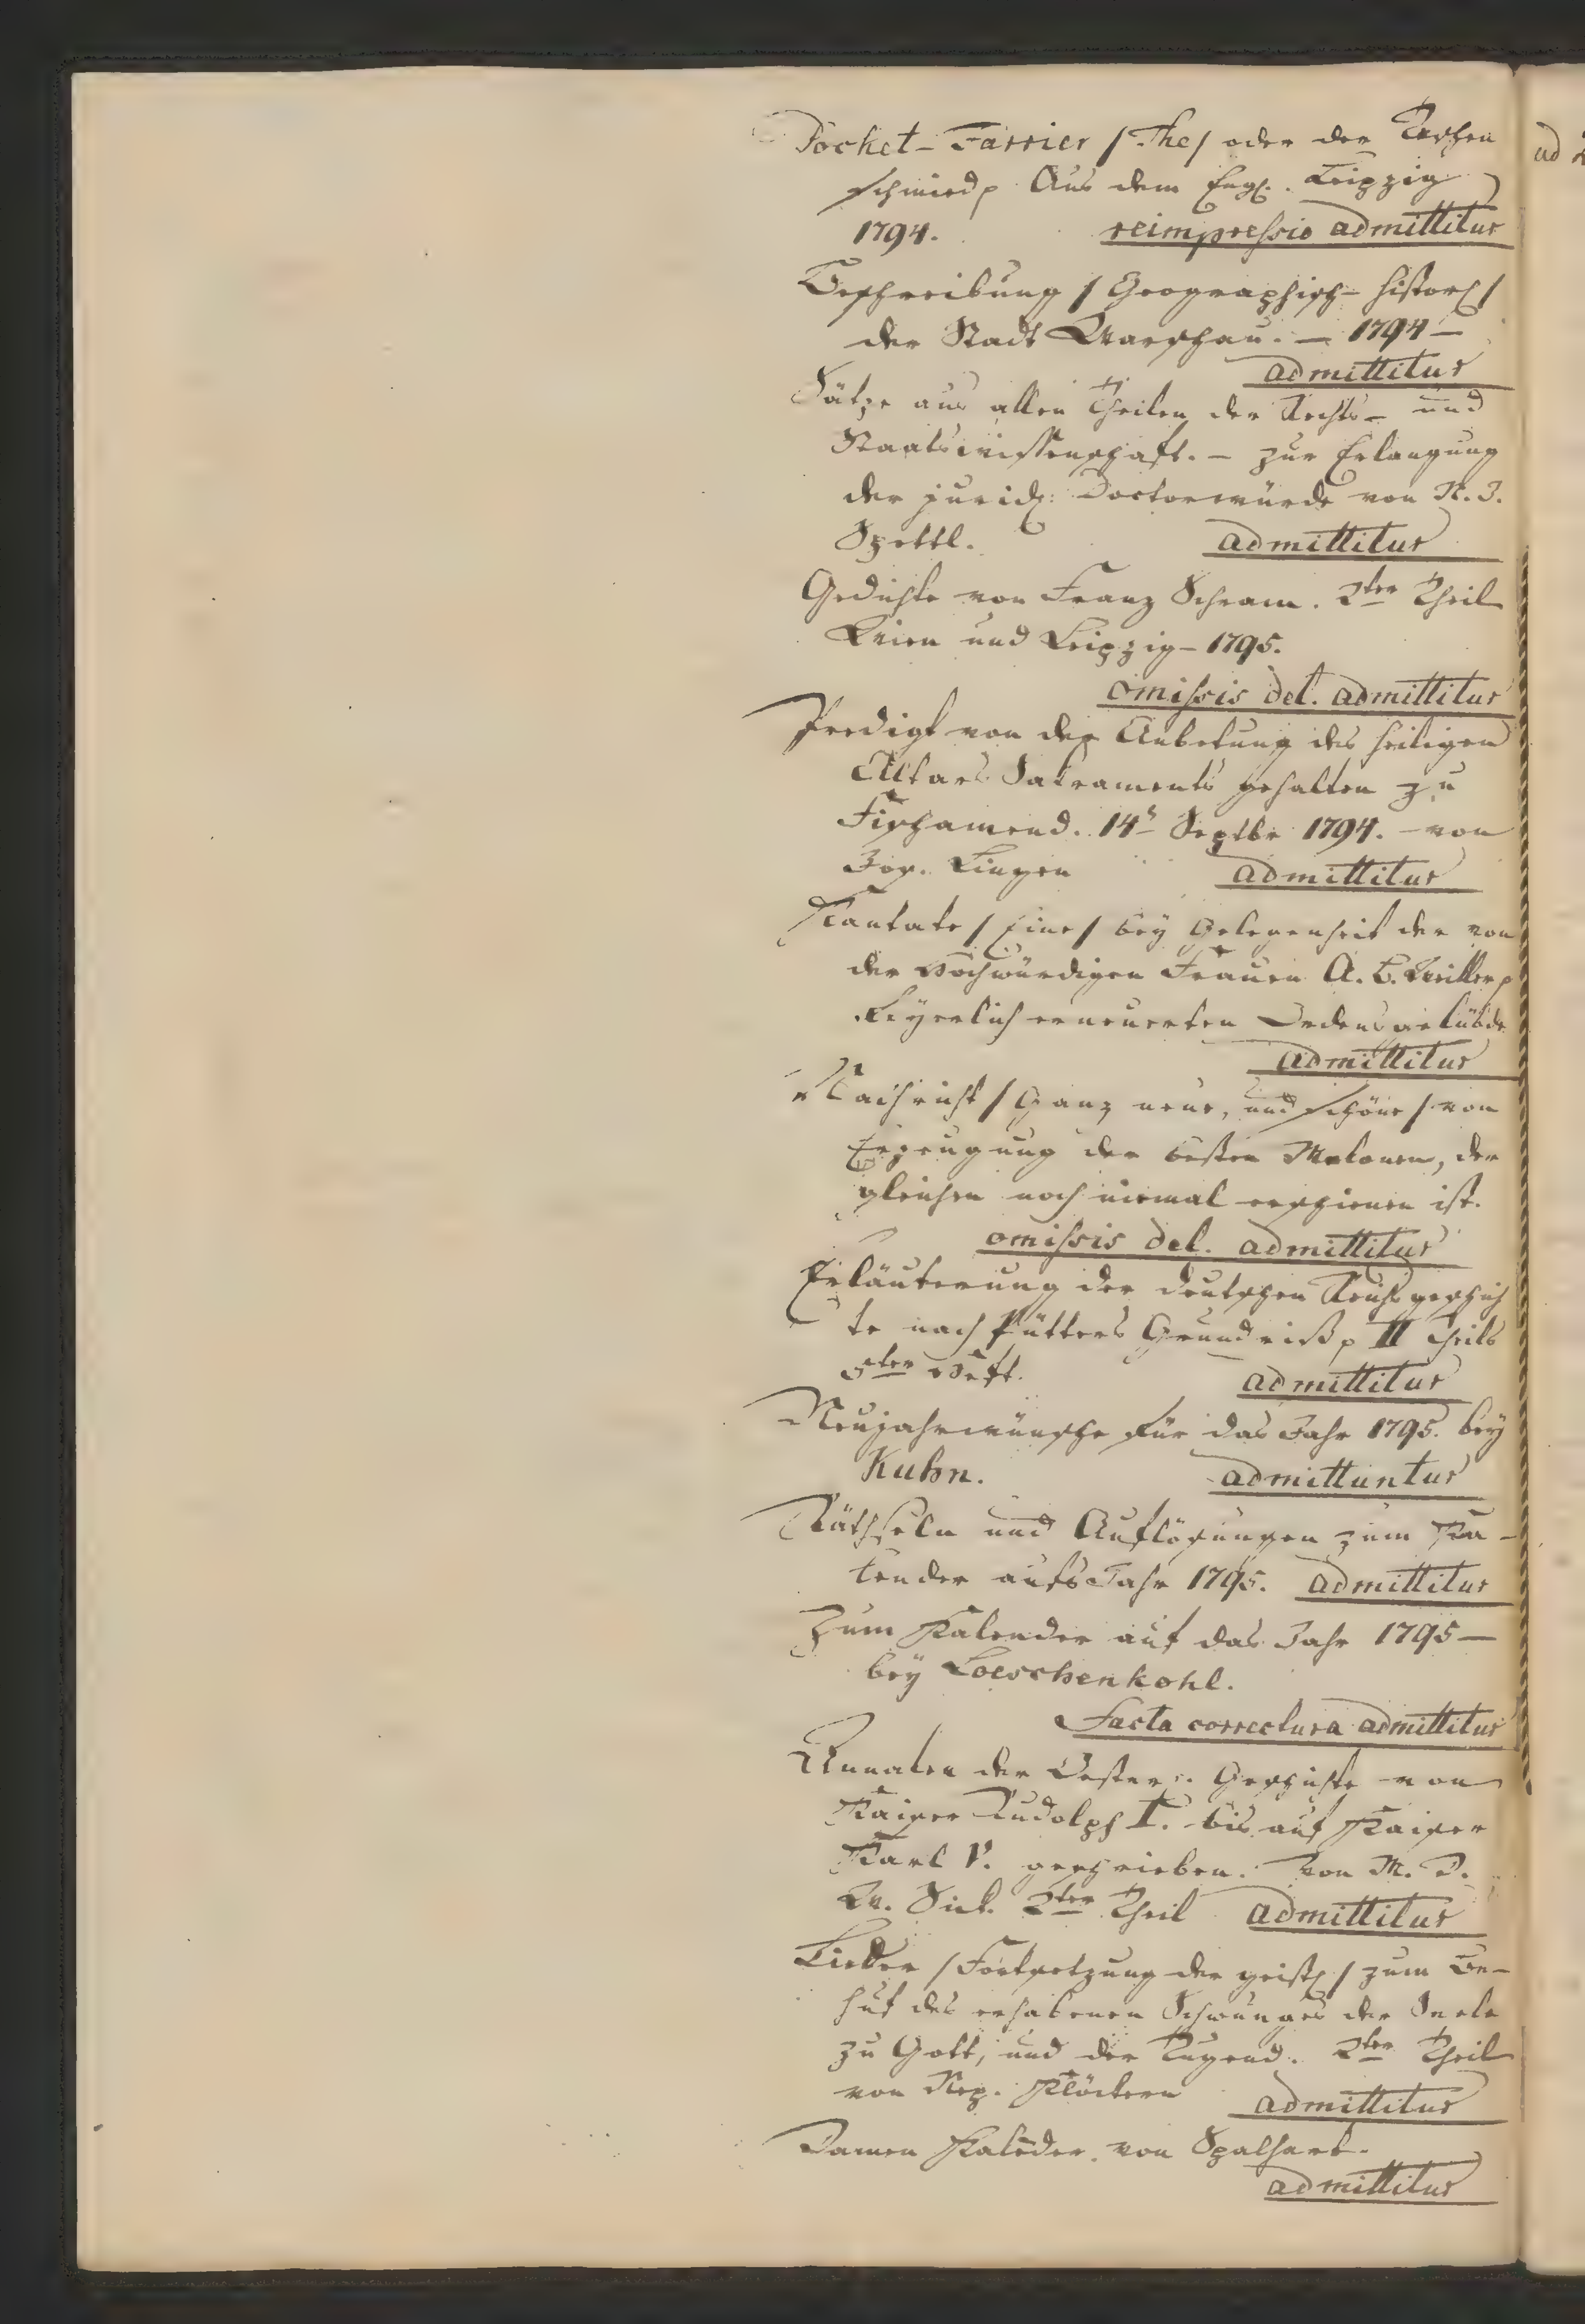 Pocket-Farrier /The/ oder der Taschen
schmied p Aus dem Engl. Leipzig
1794. reimpressio admittitur
Beschreibung / Geographisch-histor: /
der Stadt Warschau. – 1794 –
admittitur
Sätze aus allen Theilen der Rechts- und
Staatswissenschaft. – zur Erlangung
der jurid: Doctorwürde von N. J.
Spettl. admittitur
Gedichte von Franz Schram. 2ter Theil
Wien und Leipzig – 1795.
omissis del. admittitur
Predigt von der Anbetung des heiligen
Altars Sakraments gehalten zu
Fischamend. 14t Septbr 1794. – von
Jos. Lingen admittitur
Kantate / Eine / bey Gelegenheit der von
der Hochwürdigen Frauen A. C. Weiller p
feyerlich erneuerten Ordensgelübde
admittitur
Nachricht / Ganz neue, und schöne / von
Erzeugung der besten Melonen, der
gleichen noch niemal erschienen ist.
omissis del. admittitur
Erläuterung der deutschen Reichsgeschich
te nach Pütters Grundriß p II Theils
5ter Heft. admittitur
Neujahrwünsche für das Jahr 1795. bey
Kuhn. admittuntur
Räthseln und Auflösungen zum Ka-
lender aufs Jahr 1795. admittitur
Zum Kalender auf das Jahr 1795 –
bey Loeschenkohl.
Facta correctura admittitur
Annalen der Oester: Geschichte von
Kaiser Rudolph I. bis auf Kaiser
Karl V. geschrieben. von M. D.
W. Sick. 2ter Theil admittitur
Lieder / Fortsetzung der geistl / zum Be-
huf des erhabenen Schwunges der Seele
zu Gott, und der Tugend. 2ter Theil
von Nep. Klöckern admittitur
Damen Kalēder von Spalhart.
admittitur
ad